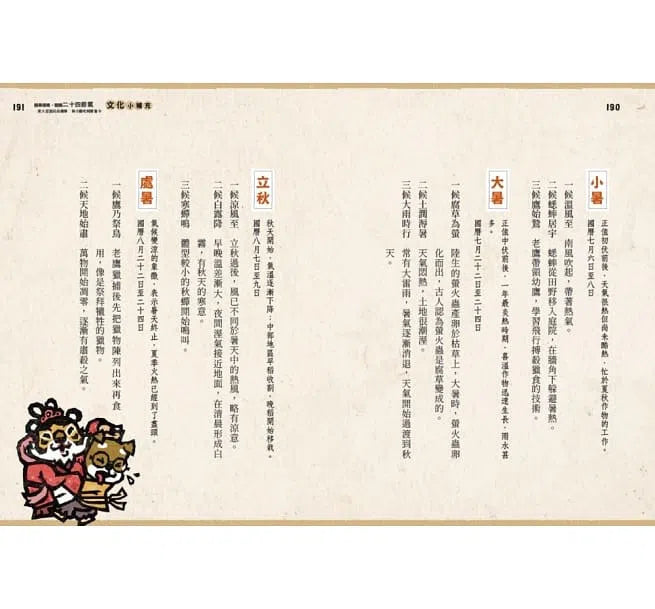 190
小暑
正值初伏前後，天氣很熱但尚未酷熱，忙於夏秋作物的工作。
國曆七月六日至八日
一候溫風至　南風吹起，帶著熱氣。
二候蟋蟀居宇　蟋蟀從田野移入庭院，在牆角下躲避暑熱。
三候鷹始鷙　老鷹帶領幼鷹，學習飛行搏殺獵食的技術。
大暑
正值中伏前後，一年最炎熱時期，喜溫作物迅速生長，雨水甚
多。
國曆七月二十二日至二十四日
一候腐草為螢　陸生的螢火蟲產卵於枯草上，大暑時，螢火蟲卵
化而出，古人認為螢火蟲是腐草變成的。
二候土潤溽暑　天氣悶熱，土地很潮溼。
三候大雨時行　常有大雷雨，暑氣逐漸消退，天氣開始過渡到秋
天。
191
二十四節氣
文化小補充
立秋
秋天開始，氣溫逐漸下降；中部地區早稻收割，晚稻開始移栽。
國曆八月七日至九日
一候涼風至　立秋過後，風已不同於暑天中的熱風，略有涼意。
二候白露降　早晚溫差漸大，夜間溼氣接近地面，在清晨形成白
霧，有秋天的寒意。
三候寒蟬鳴　體型較小的秋蟬開始鳴叫。
處暑
氣候變涼的象徵，表示暑天終止，夏季火熱已經到了盡頭。
國曆八月二十二日至二十四日
一候鷹乃祭鳥　老鷹獵捕後先把獵物陳列出來再食
用，像是祭拜犧牲的獵物。
二候天地始肅　萬物開始凋零，逐漸有肅殺之氣。